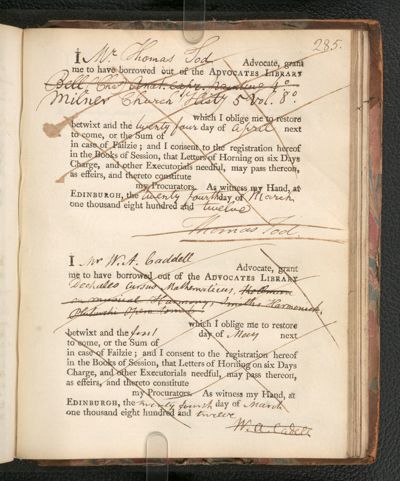 285.
I Mr Thomas Tod Advocate, grant
me to have borrowed out of the ADVOCATES LIBRARY
Bell Chs Anat. Expr. Painting 4o
Milner Church Histy 5 Vol. 8o.
which I oblige me to restore
betwixt and the twenty four day of April next
to come, or the Sum of
in case of Failzie; and I consent to the registration hereof
in the Books of Session, that Letters of Horning on six Days
Charge, and other Executorials needful, may pass thereon,
as effeirs, and thereto constitute
my Procurators. As witness my Hand, at
EDINBURGH, the twenty fourth day of March
one thousand eight hundred and twelve
Thomas Tod.
I Mr W. A. Caddell
Advocate, grant
me to have borrowed out of the ADVOCATES LIBRARY
Dechales Cursus Mathematicus, Holden
on musical Harmony, Smiths Harmonick,
Opera
which I oblige me to restore
betwixt and the first day of May next
to come, or the Sum of
in case of Failzie; and I consent to the registration hereof
in the Books of Session, that Letters of Horning on six Days
Charge, and other Executorials needful, may pass thereon,
as effeirs, and thereto constitute
my Procurators. As witness my Hand, at
EDINBURGH, the twenty fourth day of March
one thousand eight hundred and twelve
W. A. Cadell